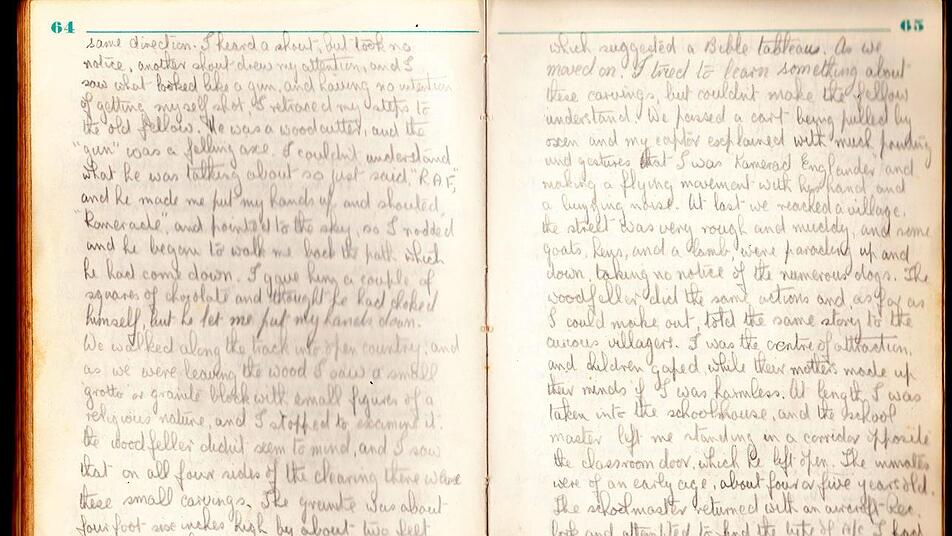 64
same direction. I heard a shout, but took no
notice, another shout drew my attention, and I
saw what looked like a gun, and having no intention
of getting myself shot, I retraced my steps to
the old fellow. He was a woodcutter, and the
"gun" was a felling axe. I couldn't understand
what he was talking about so just said, "R.A.F.",
and he made me put my hands up and shouted,
"Kamerade", and pointed to the sky, so I nodded
and he began to walk me back the path which
he had come down. I gave him a couple of
squares of chocolate and thought he had choked
himself, but he let me put my hands down.
We walked along the track into open country, and
as we were leaving the wood I saw a small
grotto or granite block with small figures of a
religious nature, and I stopped to examine it.
the woodfeller didn't seem to mind, and I saw
that on all four sides of the clearing there were
these small carvings. The granite was about
four foot six inches high by about two feet
65
which suggested a Bible tableaux. As we
moved on, I tried to learn something about
these carvings, but couldn't make the fellow
understand. We passed a cart being pulled by
oxen and my captor explained with much pointing
and gestures that I was Kamerad Englander and
making a flying movement with his hand, and
a buzzing noise. At last we reached a village,
the street was very rough and muddy, and some
goats, hens, and a lamb, were parading up and
down, taking no notice of the numerous dogs. The
woodfeller did the same actions and, as far as
I could make out, told the same story to the
curious villagers. I was the centre of attraction,
and children gaped, while their mothers made up
their minds if I was harmless. At length, I was
taken into the schoolhouse, and the school
master left me standing in a corridor opposite
the classroom door, which he left open. The inmates
were of an early age, about four or five years old.
The schoolmaster returned with an aircraft Rec.
book and attempted to find the type of a/c I had